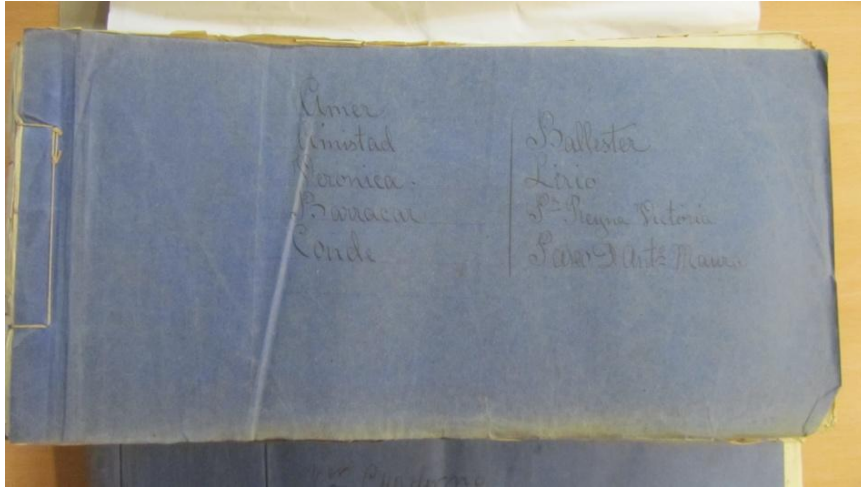 Amer
Amistad
Veronica
Barracar
Conde
Ballester
Lirio
Pª Reyna Victoria
Paseo D. Antº Maura
Cuaderno